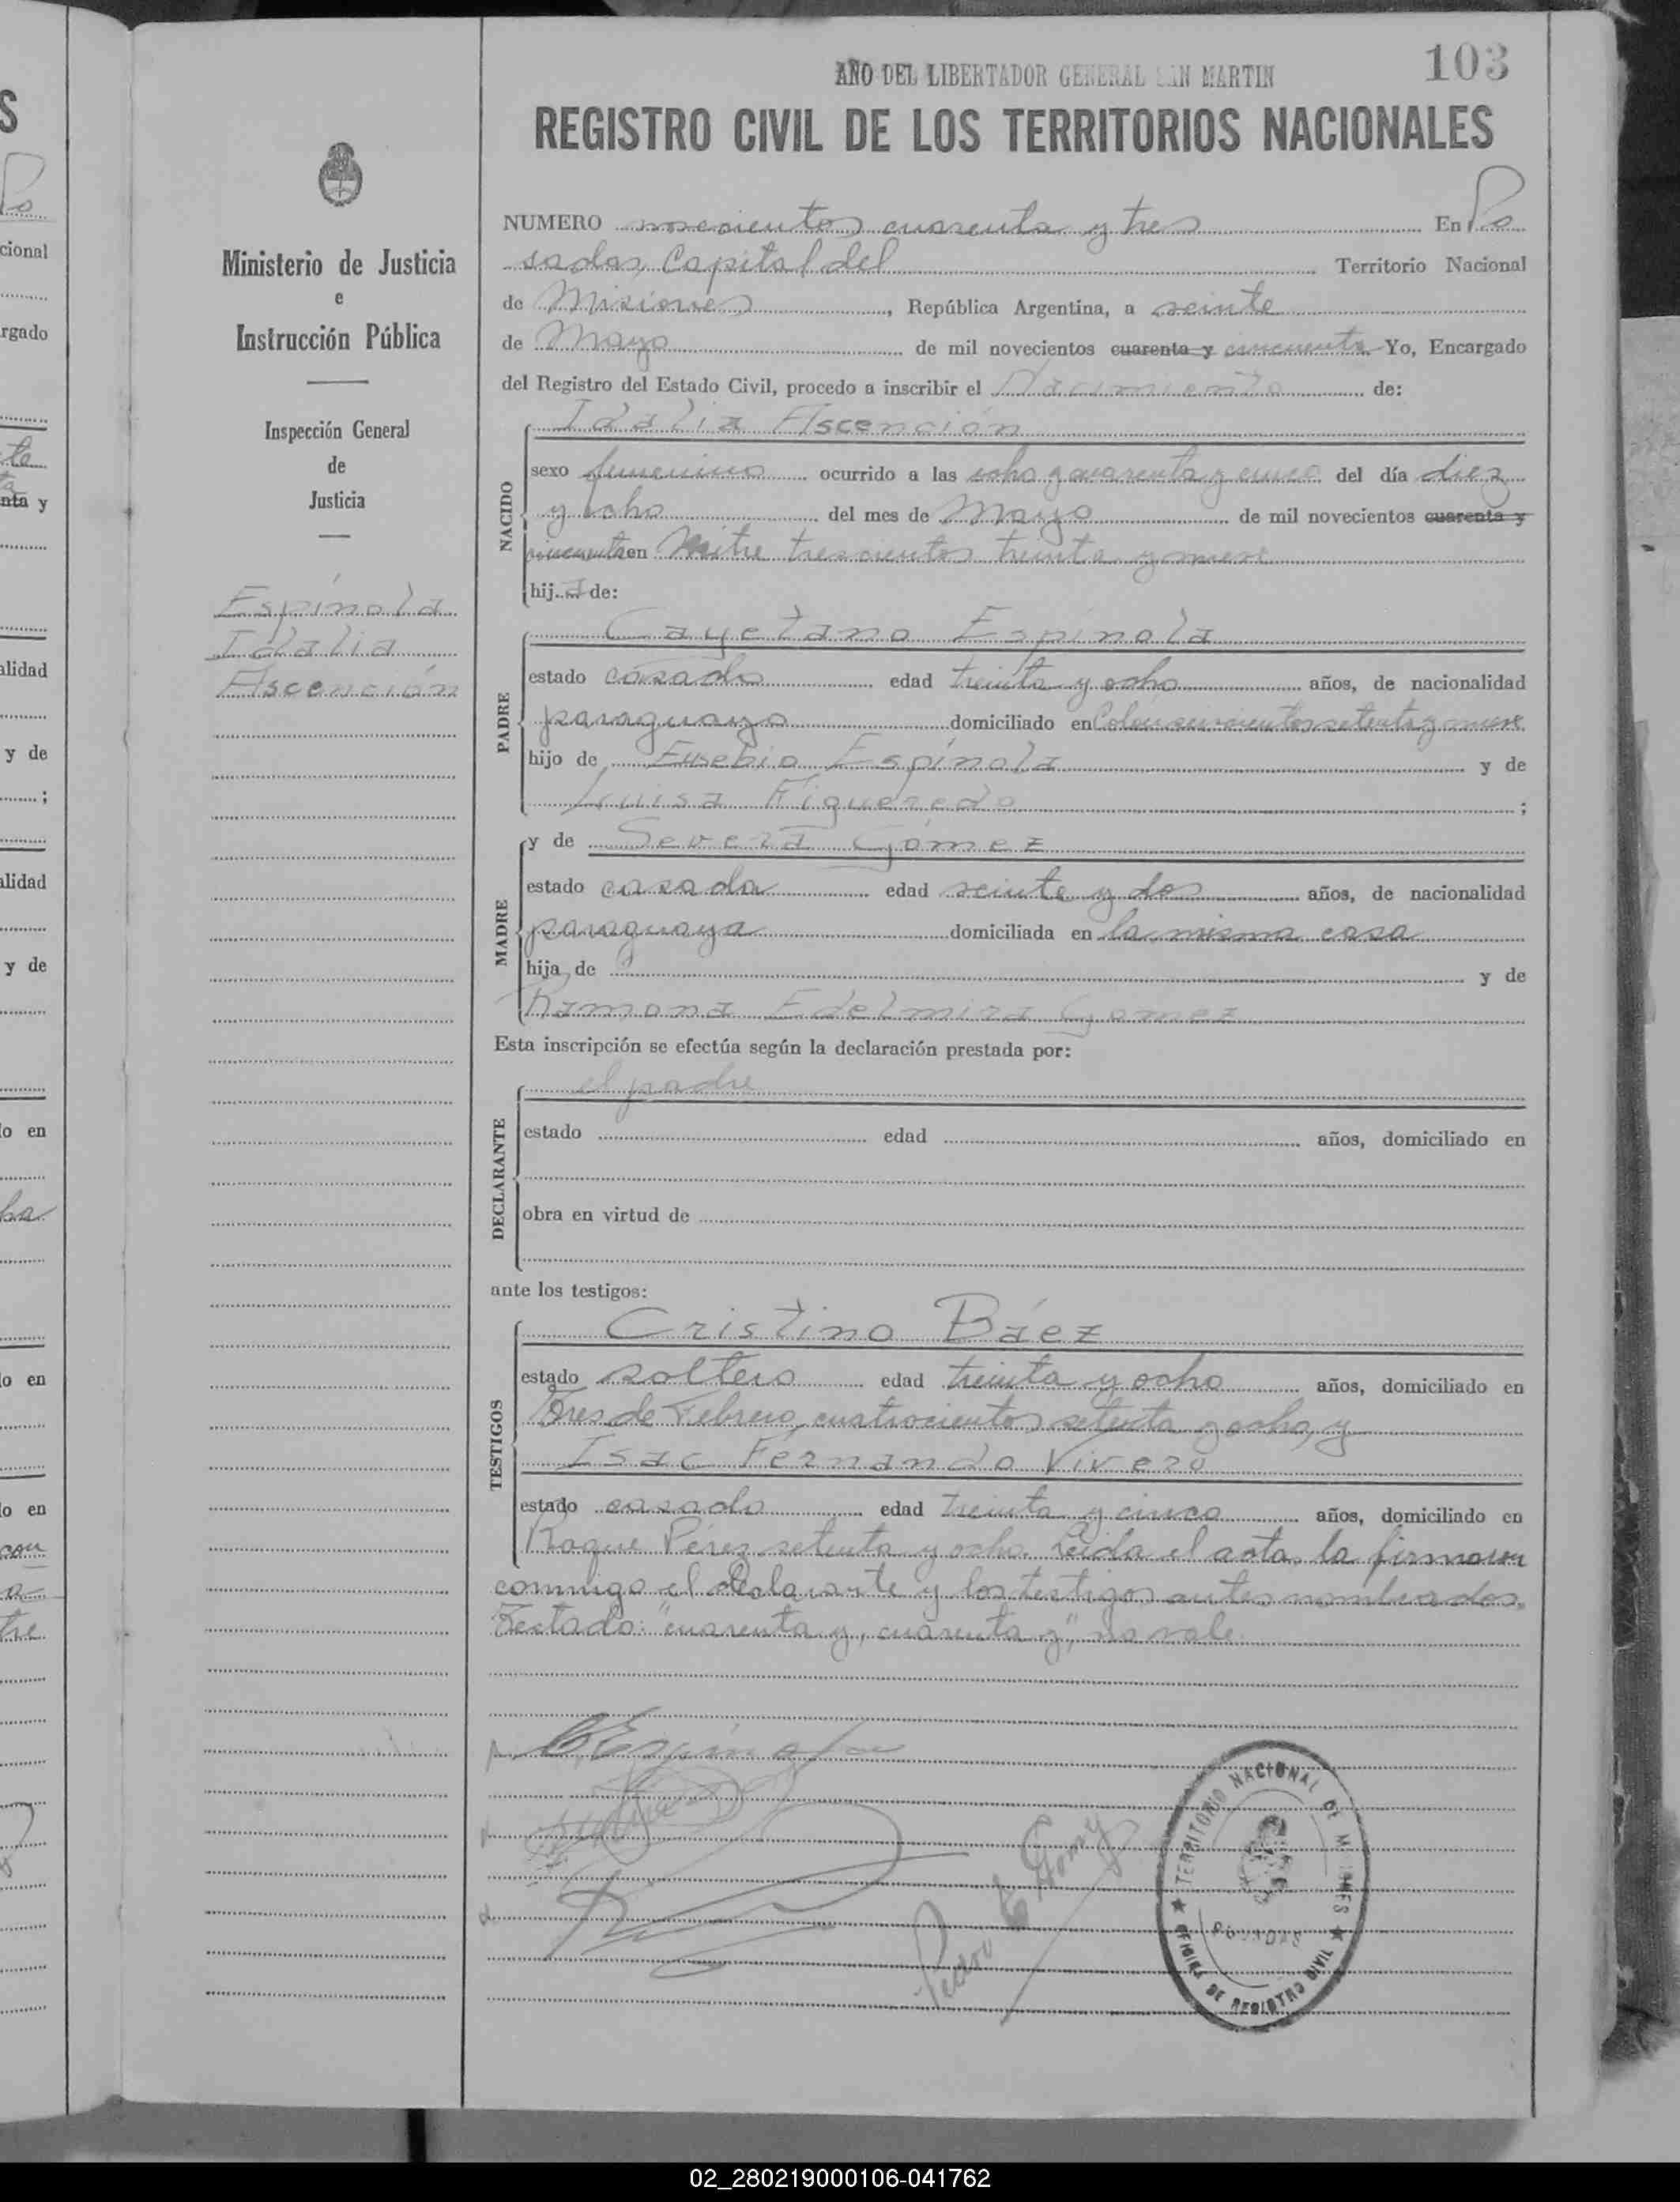 103
AÑO DEL LIBERTADOR GENERAL SAN MARTIN
REGISTRO CIVIL DE LOS TERRITORIOS NACIONALES
Ministerio de Justicia
e
Instrucción Pública
Inspección General
de
Justicia
Espínola
Idalia
Ascención
NUMERO novecientos cuarenta y tres En Po
sadas, Capital del Territorio Nacional
de Misiones, República Argentina, a veinte
de Mayo de mil novecientos cuarenta y cincuenta Yo, Encargado
del Registro del Estado Civil, procedo a inscribir el Nacimiento de:
NACIDO
Idalia Ascención
sexo femenino ocurrido a las ocho y cuarenta y cinco del día diez
y ocho del mes de Mayo de mil novecientos cuarenta y
cincuenta en Mitre trescientos treinta y nueve
hija de:
PADRE
Cayetano Espínola
estado casado edad treinta y ocho años, de nacionalidad
paraguayo domiciliado en Colón setenta y nueve
hijo de Eusebio Espínola y de
Luisa Figueredo ;
MADRE
y de Severa Gómez
estado casada edad veinte y dos años, de nacionalidad
paraguaya domiciliada en la misma casa
hija de y de
Ramona Edelmira Gomez
Esta inscripción se efectúa según la declaración prestada por:
DECLARANTE
el padre
estado edad años, domiciliado en
obra en virtud de
ante los testigos:
TESTIGOS
Cristino Báez
estado soltero edad treinta y ocho años, domiciliado en
Tres de Febrero, cuatrocientos setenta y ocho, y
Isac Fernando Vivero
estado casado edad treinta y cinco años, domiciliado en
Roque Pérez setenta y ocho. Leída el acta, la firmaron
conmigo el declarante y los testigos antes nombrados.
Testado: "cuarenta y, cuarenta y", no vale.
C Espinola
TERRITORIO NACIONAL DE MISIONES
POSADAS
OFICINA DE REGISTRO CIVIL
02_280219000106-041762